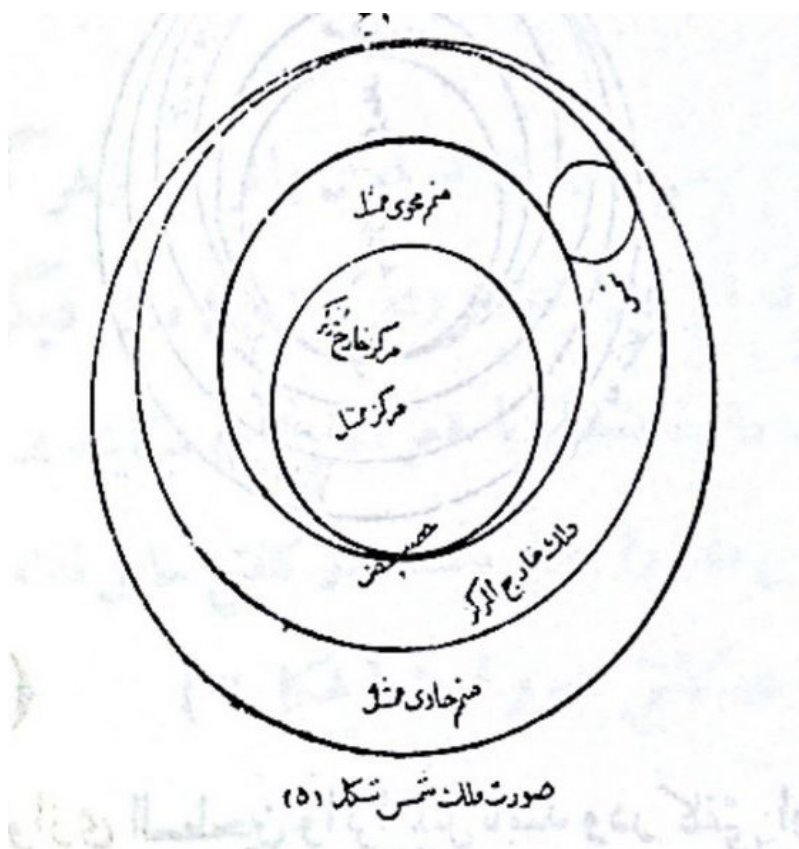 متمم محوی ممثل
شمس
مرکز خارج
مرکز ممثل
حضیض
فلک خارج المرکز
متمم حاوی ممثل
صورت فلک شمس شکل (۵)